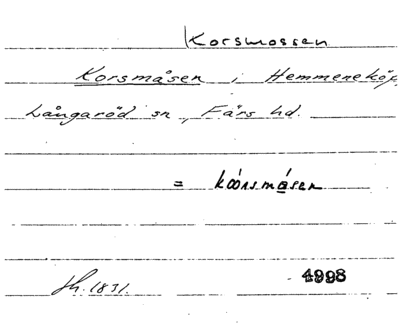 Korsmossen
Korsmåsen i Hemmeneköp
Långaröd sn, Färs hd.
= kóòrsmásen
4998
Jh. 1831.